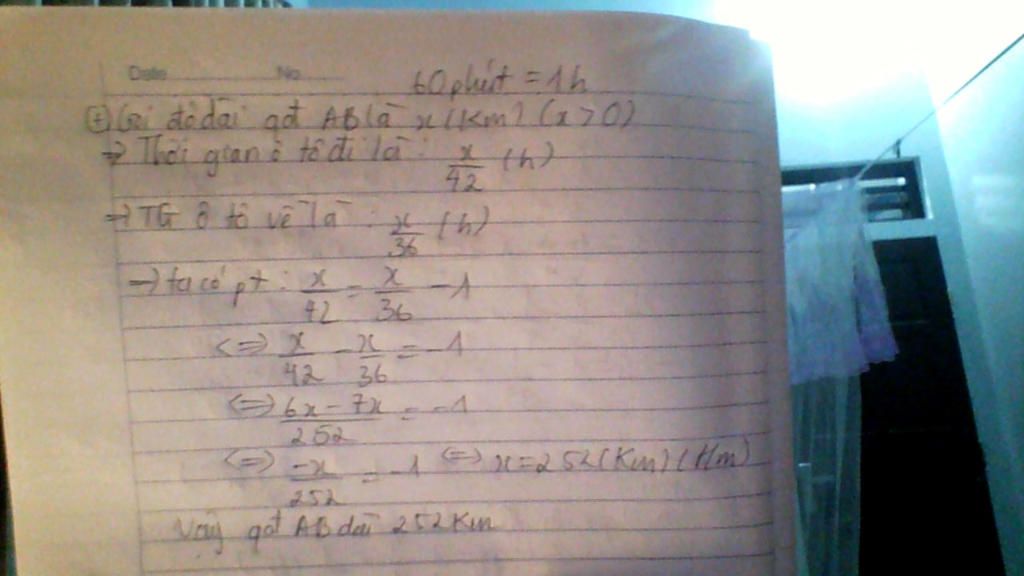 Date No
60 phút = 1h
(+) Gọi độ dài qđ AB là x (Km) (x > 0)
=> Thời gian ô tô đi là : x/42 (h)
=> TG ô tô về là : x/36 (h)
-> ta có pt : x/42 = x/36 - 1
<=> x/42 - x/36 = -1
<=> (6x - 7x)/252 = -1
<=> -x/252 = -1 <=> x = 252 (Km) (t/m)
Vậy qđ AB dài 252 Km